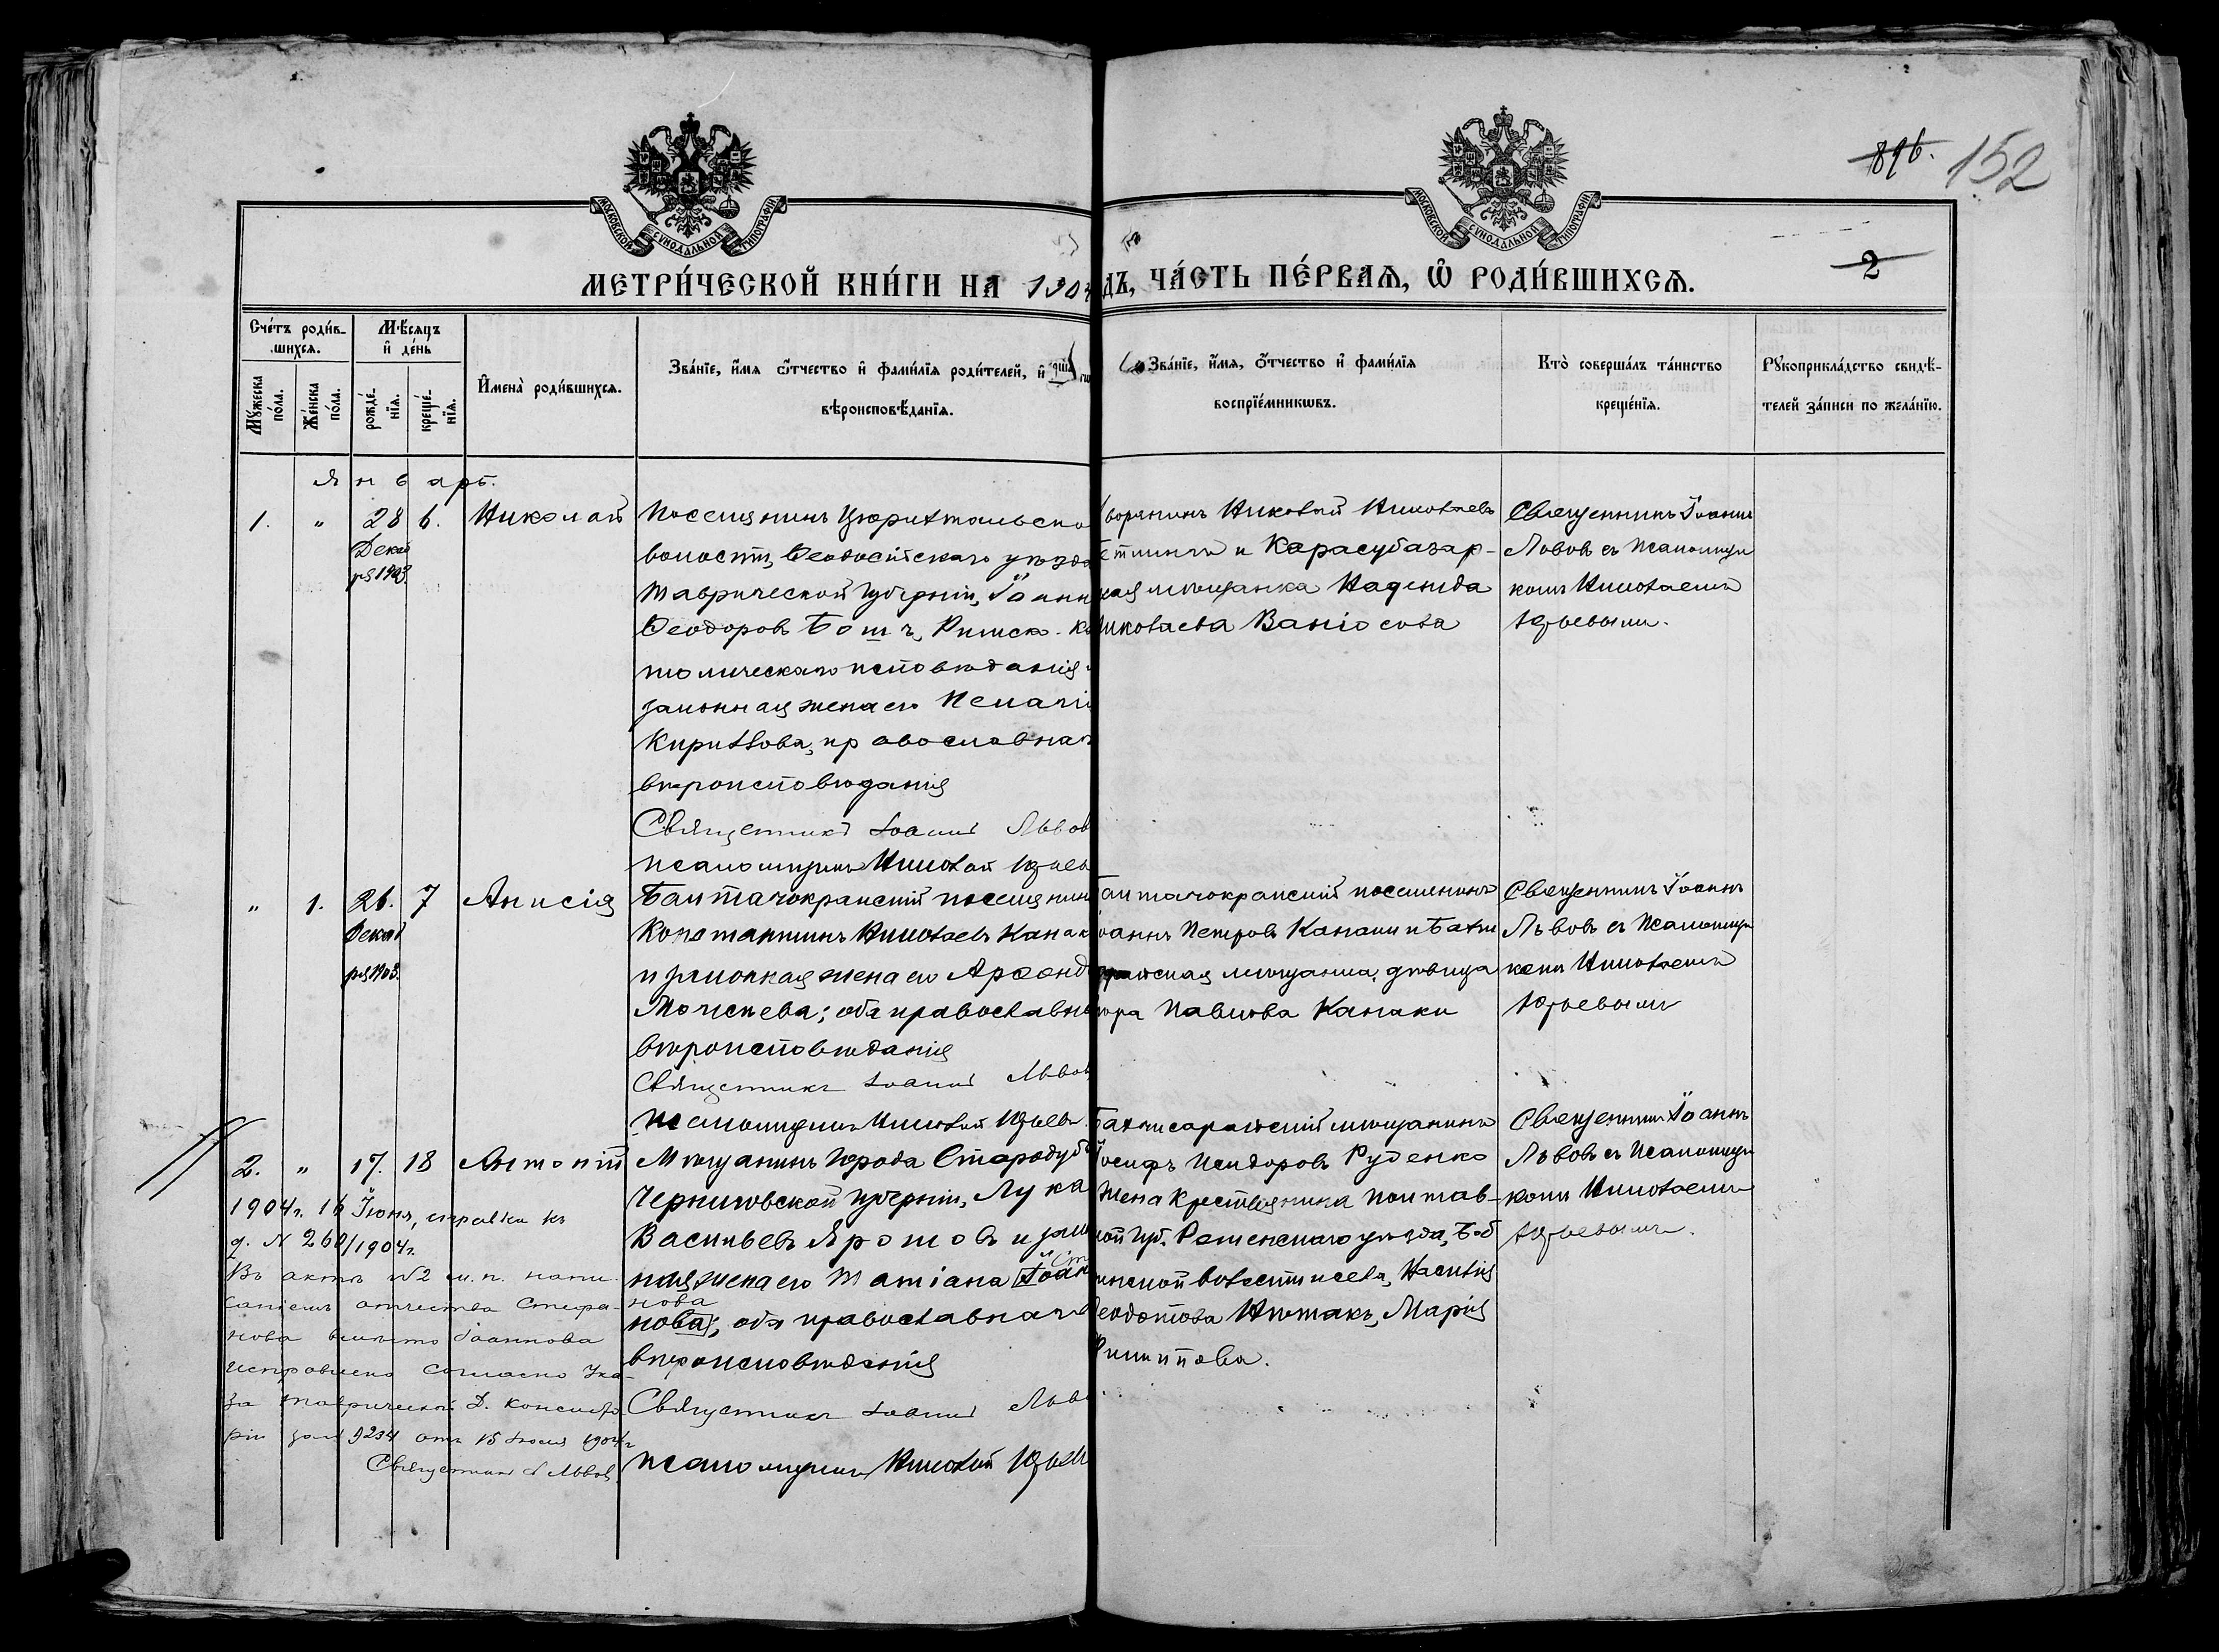 896. 152
МОСКОВСКОЙ СѴНОДАЛЬНОЙ ТИПОГРАФІИ
МОСКОВСКОЙ СѴНОДАЛЬНОЙ ТИПОГРАФІИ
МЕТРИ́ЧЕСКОЙ КНИ́ГИ НА 1904
ДЪ, ЧА́СТЬ ПЕ́РВАѦ, Ѿ РОДИ́ВШИХСѦ.
2
Сче́тъ роди́в-
шихсѧ.
Мꙋ́жеска по́ла.
Же́нска по́ла.
Мѣ́сѧцъ и҆ де́нь
рожде́-
нїѧ.
креще́-
нїѧ.
И҆мена̀ роди́вшихсѧ.
Зва́нїе, и҆́мѧ ѻ҆́тчество и҆ фами́лїѧ роди́телей, и҆
вѣроисповѣ́данїѧ.
Зва́нїе, и҆́мѧ, ѻ҆́тчество и҆ фами́лїѧ
воспрїе́мникѡвъ.
Кто̀ соверша́лъ та́инство
креще́нїѧ.
Рꙋкоприкла́дство свидѣ́-
телей за́писи по жела́нїю.
Январь.
1. " 28 6. Николай
Декаб
ря 1903
Поселянинъ Цюрихтальско
волости, Ѳеодосійскаго уѣзда
Таврической губерніи, Іоанн
Ѳеодоровъ Ботъ, Римско-Ка
толическаго исповѣданія
законная жена его Пелагі
Кириллова, православнаг
вѣроисповѣданія
Священникъ Іоаннъ Львов
псаломщикъ Николай Юрьев
ворянинъ Николай Николаевъ
и Карасубазар-
кая мѣщанка Надежда
Николаева
Священникъ Іоаннъ
Львовъ съ Псаломщи
комъ Николаемъ
Юрьевымъ.
" 1. 26. 7 Анисія
Декаб
ря 1903.
поселянин
Константинъ Николаевъ Канак
и законная жена его
Моисеева; оба православна
вѣроисповѣданія
Священникъ Іоаннъ Львов
псаломщикъ Николай Юрьев.
поселянинъ
Іоаннъ Петровъ Канаки и Бахчи
мѣщанка, дѣвица
Павлова Канаки
Священникъ Іоаннъ
Львовъ съ Псаломщи
комъ Николаемъ
Юрьевымъ
2. " 17. 18 Антоній
Мѣщанинъ города Стародуб
Черниговской губерніи, Лука
Васильевъ Яротовъ и зак
ная жена его Татіана Іоан
Сте
нова
нова; оба православнаго
вѣроисповѣданія
Священникъ Іоаннъ Льво
псаломщикъ Николай Юрьев
Бахчисарайскій мѣщанинъ
Іосифъ Исидоровъ Руденко
жена крестьянина Полтав-
кой губ. уѣзда, Боб
инской волости и села, Василія
Ѳеодотова Марія
Филиппова.
Священникъ Іоаннъ
Львовъ съ Псаломщи
комъ Николаемъ
Юрьевымъ.
1904 г. 16 Іюня, справки къ
д. № 260/1904 г.
Въ актѣ №2 м.п. напи-
саніемъ отчества Стефа-
нова вмѣсто Іоаннова
исправлено согласно Ука-
за Таврической Д. Консисто
ріи за № 9234 отъ 15 Іюля 1904 г
Священникъ І Львов